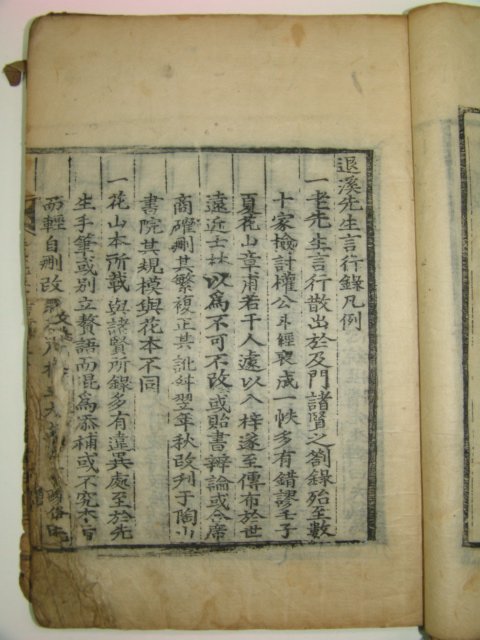 退溪先生言行錄凡例
一老先生言行散出於及門諸賢之劄錄殆至數
十家檢討權公斗經裒成一帙多有錯謬壬子
夏花山章甫若干人遽以入梓遂至傳布於世
遠近士林以爲不可不改或貽書辨論或合席
商礭刪其繁複正其訛舛翌年秋改刊于陶山
書院其規模與花本不同
一花山本所載與諸賢所錄多有違異處至於先
生手筆或別立贅語而混爲添補或不究本旨
而輕自刪改